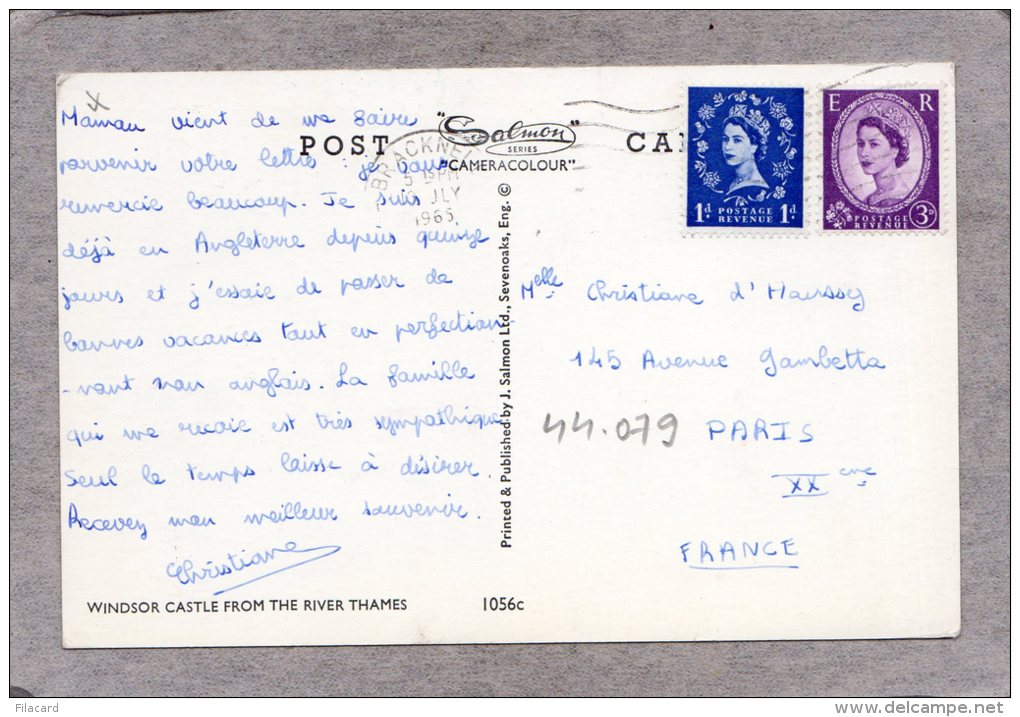 Maman vient de me faire
parvenir votre lettre : je vous
remercie beaucoup. Je suis
déjà en Angleterre depuis quinze
jours et j'essaie de passer de
bonnes vacances tout en perfection
-nant mon anglais. La famille
qui me reçoie est très sympathique
Seul le temps laisse à désirer
Recevez mon meilleur souvenir.
Christiane
WINDSOR CASTLE FROM THE RIVER THAMES
1056c
POST
"Salmon"
SERIES
"CAMERACOLOUR"
BRACKNE
JLY
1965
Printed & Published by J. Salmon Ltd., Sevenoaks, Eng. ©
1d. POSTAGE REVENUE 1d.
E R
POSTAGE REVENUE 3D
Melle Christiane d'
145 Avenue Gambetta
44.079 PARIS
XX eme
FRANCE
Filacard
www.delcampe.net